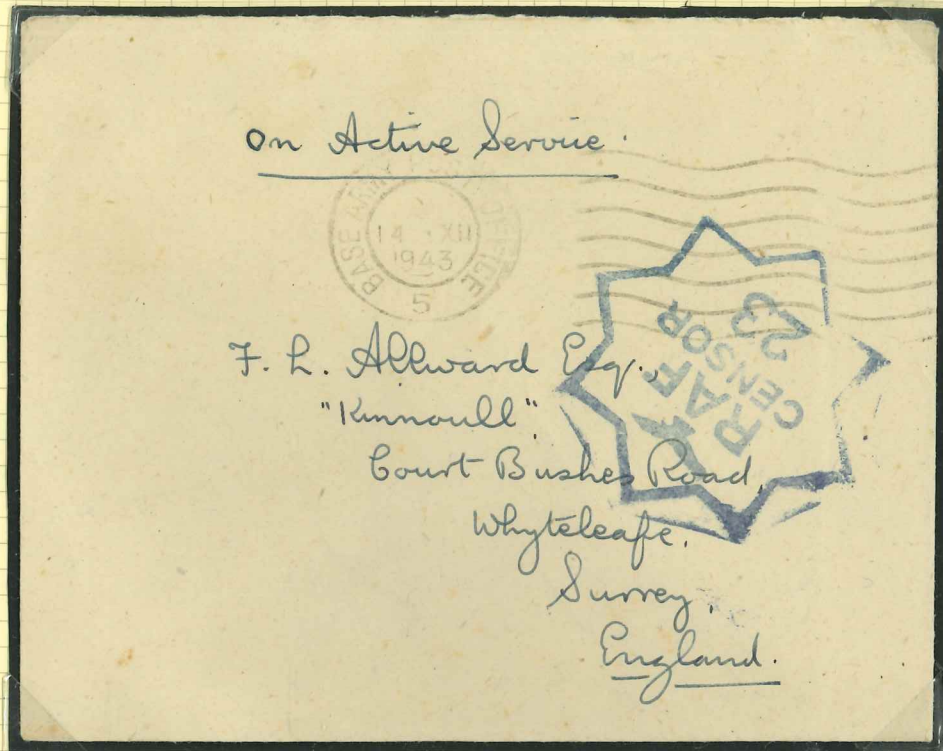 On Active Service.
BASE ARMY POST OFFICE
14 XII
1943
5
RAF
CENSOR
23
F. L. Allward Esq.,
"Kinnoull".
Court Bushes Road,
Whyteleafe.
Surrey,
England.